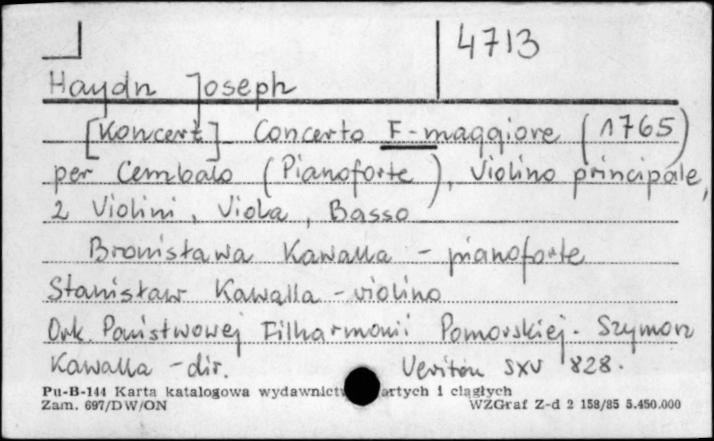 4713
Haydn Joseph
[Koncert] Concerto F-maggiore (1765)
per Cembalo (Pianoforte), Violino principale,
2 Violini, Viola, Basso
Bronisława Kawalla - pianoforte
Stanisław Kawalla - violino
Ork. Państwowej Filharmonii Pomorskiej. Szymon
Kawalla - dir. Veriton SXV 828.
Pu-B-144 Karta katalogowa wydawnict artych i ciągłych
Zam. 697/DW/ON WZGraf Z-d 2 158/85 5.450.000